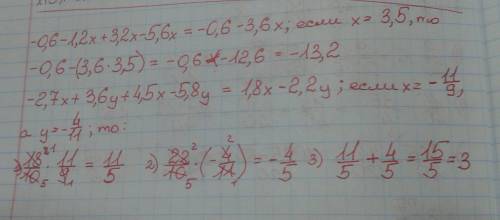 -0,6-1,2x+3,2x-5,6x = -0,6-3,6x; если x= 3,5, то
-0,6-(3,6·3,5) = -0,6 -12,6 = -13,2
-2,7x+3,6y+4,5x-5,8y = 1,8x-2,2y; если x= -11/9,
а y=-4/11; то:
18/10 · 11/9 = 11/5 2) 22/10 · (-4/11) = -4/5 3) 11/5 + 4/5 = 15/5 = 3